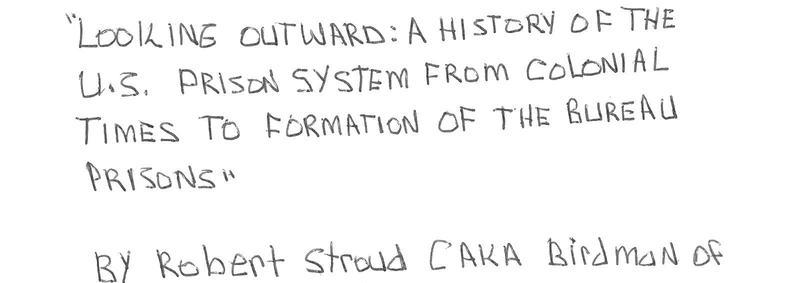 "LOOKING OUTWARD: A HISTORY OF THE
U.S. PRISON SYSTEM FROM COLONIAL
TIMES TO FORMATION OF THE BUREAU
PRISONS"
BY Robert Stroud (AKA Birdman of